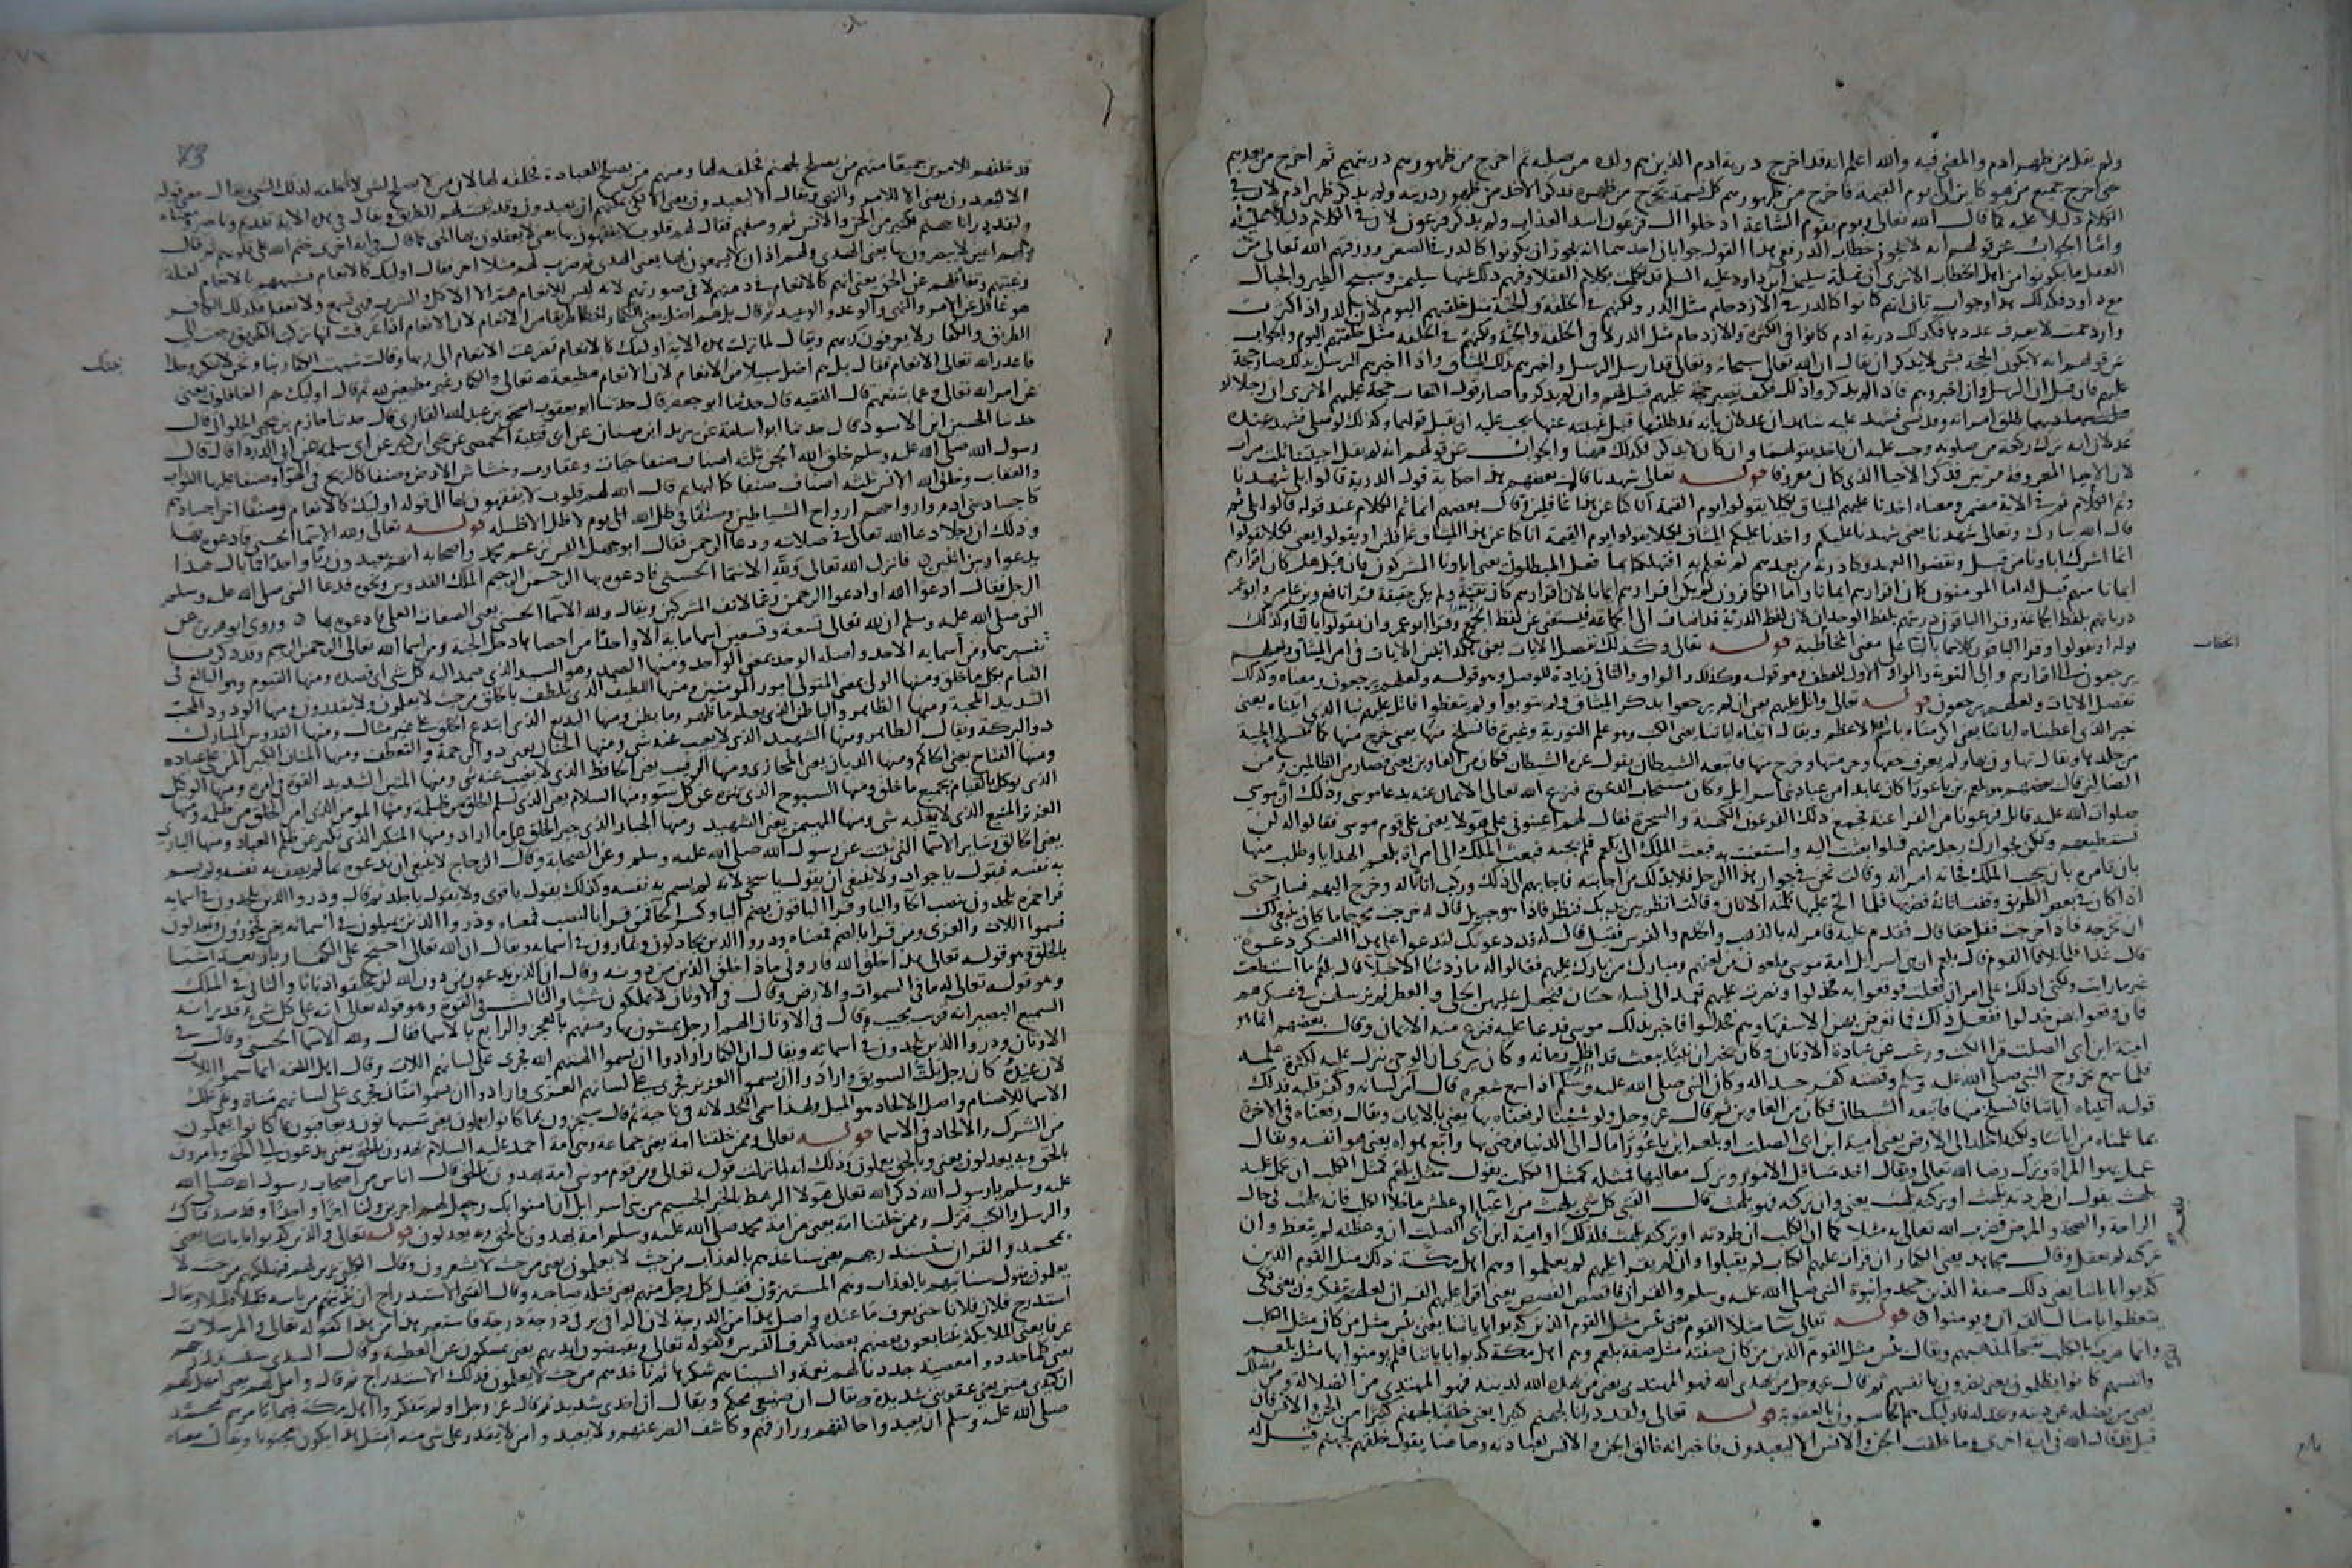 ولم يقل من ظهر ادم والمعنى فيه والله اعلم انه قد اخرج ذرية ادم الذين هم ولده من صلبه ثم اخرج من ظهورهم ذريتهم ثم اخرج من بعدهم
حتى اخرج جميع من هو كاين الى يوم القيمة فاخرج من ظهورهم كل نسمة تخرج من ظهره فذكر الاخذ من ظهور ذريته ولم يذكر ظهر ادم لان في
الكلام دليلا عليه كما قال الله تعالى ويوم تقوم الساعة ادخلوا ال فرعون اشد العذاب ولم يذكر فرعون لان في الكلام دليلا عليه
واما الجواب عن قولهم انه لا يجوز خطاب الذر فع هذا القول جوابان احدهما انه يجوز ان يكونوا كالذر في الصغر ورزقهم الله تعالى من
العقل ما يكونوا من اهل الخطاب الا ترى ان نملة سليمن ابن داود عليه السلم قد تكلمت بكلام العقلا وفهم ذلك عنها سليمن وتسبيح الطير والجبال
مع داود فكذلك هذا وجواب ثان انهم كانوا كالذر في الازدحام مثل الذر ولكنهم في الخلقة والجثة مثل خلقتهم اليوم لان الذر اذا كثرت
وازدحمت لا يعرف عددها فكذلك ذرية ادم كانوا في الكثرة والازدحام مثل الذر لا في الخلقة والجثة ولكنهم في الخلقة مثل خلقتهم اليوم والجواب
عن قولهم انه لا يكون الحجة بشي لا يذكر ان يقال ان الله تعالى سبحانه وتعالى قد ارسل الرسل واخبرهم بذلك الميثاق واذا اخبرهم الرسل بذلك صار حجة
عليهم فان قيل ان الرسل وان اخبروهم فاذا لم يذكروا ذلك فكيف يصير حجة عليهم قيل لهم وان لم يذكروا صار قول الثقات حجة عليهم الا ترى ان رجلا لو
طلق امراته وقد نسي فشهد عليه شاهدان عدلان بانه قد طلقها قبل غيبته عنها يجب عليه ان يقبل قولهما وكذلك لو صلى فشهد عنده
عدلان انه ترك ركعة من صلوته وجب عليه ان ياخذ بقولهما وان كان لا يذكر فكذلك ههنا والجواب عن قولهم انه لم يقل احييتنا ثلث مرات
لان الاحيا المعروفة مرتين فذكر الاحيا الذي كان معروفا قوله تعالى شهدنا قال بعضهم هذا حكاية قول الذرية قالوا بلى شهدنا
وتم الكلام ثم في الاية مضمر ومعناه اخذنا عليهم الميثاق لكيلا يقولوا يوم القيمة انا كنا عن هذا غافلين وقال بعضهم انما تم الكلام عند قوله قالوا بلى ثم
قال الله تبارك وتعالى شهدنا يعني شهدنا عليكم واخذنا عليكم الميثاق لكيلا تقولوا يوم القيمة انا كنا عن هذا الميثاق غافلين او يقولوا يعني لكيلا تقولوا
انما اشرك اباونا من قبل ونقضوا العهد وكنا ذرية من بعدهم لم نعلم به افتهلكنا بما فعل المبطلون يعني اباونا المشركون فان قيل هل كان اقرارهم
ايمانا منهم قيل له اما المومنون كان اقرارهم ايمانا واما الكافرون لم يكن اقرارهم ايمانا لان اقرارهم كان تقية ولم يكن حقيقة قرا نافع وابن عامر وابو عمر
ذرياتهم بلفظ الجماعة وقرا الباقون ذريتهم بلفظ الوحدان لان لفظ الذرية قد اضاف الى الجماعة فيستغنى عن لفظ الجمع وقرا ابو عمر وان يقولوا باليا وكذلك
قوله او يقولوا وقرا الباقون كلاهما بالتا على معنى المخاطبة قوله تعالى وكذلك نفصل الايات يعني هكذا نبين الايات في امر الميثاق ولعلهم
يرجعون الى اقرارهم والى التوبة والواو الاول للعطف وهو قوله وكذلك والواو الثاني زيادة للوصل وهو قوله ولعلهم يرجعون ومعناه وكذلك
نفصل الايات ولعلهم يرجعون قوله تعالى واتل عليهم يعني ان لم يرجعوا بذكر الميثاق ولم يتوبوا ولم يتعظوا فاتل عليهم نبا الذي اتيناه يعني
خبر الذي اعطيناه اياتنا يعني اكرمناه باسم الله الاعظم ويقال اتيناه اياتنا يعني الكتب وهو علم التورية وغيره فانسلخ منها يعني خرج منها كما تنسلخ الحية
من جلدها ويقال تهاون بها ولم يعرف حقها وحرمتها وخرج منها فاتبعه الشيطان يقول غره الشيطان فكان من الغاوين يعني فصار من الظالمين ومن
الضالين قال بعضهم هو بلعم بن باعورا كان عابدا من عباد بني اسرايل وكان مستجاب الدعوة فنزع الله تعالى الايمان عنه بدعا موسى وذلك ان موسى
صلوات الله عليه قاتل فرعونا من الفراعنة فجمع ذلك الفرعون الكهنة والسحرة فقال لهم اعينوني على هولا يعني على قوم موسى فقالوا له لن
تستطيعهم ولكن بجوارك رجل منهم فلو بعثت اليه واستعنت به فبعث الملك الى بلعم فلم يجبه فبعث الملك الى امراة بلعم الهدايا وطلب منها
بان تامره بان يجيب الملك فجاته امراته وقالت نحن في جوار هذا الرجل فلا بد لك من اجابته فاجابهم الى ذلك وركب اتانا له وخرج اليهم فسار حتى
اذا كان في بعض الطريق وقفت اتانه فضربها فلما الح عليها كلمته الاتان وقالت انظر بين يديك فنظر فاذا هو جبريل قال له خرجت مخرجا ما كان ينبغي لك
ان تخرجه فاذا خرجت فقل حقا قال فقدم عليه فامر له بالذهب والخدم والفرس فقبل قال له قد دعوتك لتدعو على هذا العسكر دعوة
قال غدا فلما تلاقا القوم قال بلعم ان بني اسرايل امة موسى ملعون من لعنهم ومبارك من بارك عليهم فقالوا له ما زدتنا الا خبالا قال بلعم ما استطعت
غير ما رايت ولكني ادلك على امر ان فعلت فوقعوا به خذلوا ونصرت عليهم تعمد الى نسا حسان فتجعل عليهن الحلى والعطر ثم ترسلهن في عسكرهم
فان وقعوا بهن خذلوا ففعل ذلك فما تعرض بهن الا سفهاوهم فخذلوا فاخبر بذلك موسى فدعا عليه فنزع منه الايمان وقال بعضهم انما هو
امية ابن ابي الصلت قرا الكتب ورغب عن عبادة الاوثان وكان يخبر ان نبيا يبعث قد اظل زمانه وكان يرى ان الوحي ينزل عليه لكثرة علمه
فلما سمع بخروج النبي صلى الله عليه وسلم وقصته كفر حسدا له وكان النبي صلى الله عليه وسلم اذا سمع شعره قال امن لسانه وكفر قلبه فذلك
قوله اتيناه اياتنا فانسلخ منها فاتبعه الشيطان فكان من الغاوين ثم قال عز وجل ولو شئنا لرفعناه بها يعني بالايات ويقال رفعناه في الاخرة
بما علمناه من اياتنا ولكنه اخلد الى الارض يعني امية ابن ابي الصلت او بلعم ابن باعورا مال الى الدنيا فرضي بها واتبع هواه يعني هوا نفسه ويقال
عمل بهوا المراة وترك رضا الله تعالى ويقال اخذ مسافل الامور وترك معاليها فمثله كمثل الكلب يقول مثل بلعم كمثل الكلب ان تحمل عليه
يلهث يقول ان طردته يلهث او تركته يلهث يعني وان تركته فهو يلهث قال القتبي كل شي يلهث من اعياء او عطش ما خلا الكلب فانه يلهث في حال
الراحة والصحة والمرض فضرب الله تعالى به مثلا كما ان الكلب ان طردته او تركته يلهث فكذلك او امية ابن ابي الصلت ان وعظته لم يتعظ وان
تركته لم يعقل وقال مجاهد يعني الكفار ان قران عليهم الكتاب لم يقبلوا وان لم يقرا عليهم لم يعلموا وهم اهل مكة ذلك مثل القوم الذين
كذبوا باياتنا يعني ذلك صفة الذين جحدوا نبوة النبي صلى الله عليه وسلم والقران فاقصص القصص يعني اقرا عليهم القران لعلهم يتفكرون يعني لكي
يتعظوا بامثال القران ويومنوا به قوله تعالى سا مثلا القوم يعني بئس مثل القوم الذين كذبوا باياتنا يعني بئس مثل من كان مثل الكلب
وانما ضرب بالكلب تقبيحا لمذهبهم ويقال بئس مثل القوم الذين من كان صفته مثل صفة بلعم وهم اهل مكة كذبوا باياتنا فلم يومنوا بها مثل بلعم
وانفسهم كانوا يظلمون يعني يضرون بانفسهم ثم قال عز وجل من يهدي الله فهو المهتدي يعني من يهده الله لدينه فهو المهتدي من الضلالة ومن يضلل
يعني من يضله عن دينه ويخذله فاوليك هم الخاسرون بالعقوبة قوله تعالى ولقد ذرانا لجهنم كثيرا يعني خلقنا لجهنم كثيرا من الجن والانس فان
قيل قد قال الله في اية اخرى وما خلقت الجن والانس الا ليعبدون فاخبر انه خالق الجن والانس لعبادته وهاهنا يقول خلقهم لجهنم قيل له
73
قد خلقهم للامرين جميعا منهم من يصلح لجهنم فخلقه لها ومنهم من يصلح للعبادة فخلقه لها لان من لا يصلح لشي لا يخلقه لذلك الشي ويقال معنى قوله
الا ليعبدون يعني الا للامر والنهي ويقال الا ليعبدون يعني الا لكي يمكنهم ان يعبدون وقد بينت لهم الطريق ويقال في هذه الاية تقديم وتاخير ومعناه
ولقد ذرانا جهنم لكثير من الجن والانس ثم وصفهم فقال لهم قلوب لا يفقهون بها يعني لا يعقلون بها الحق كما قال في اية اخرى ختم الله على قلوبهم ثم قال
ولهم اعين لا يبصرون بها يعني الهدى ولهم اذان لا يسمعون بها يعني الهدى ثم ضرب لهم مثلا اخر فقال اوليك كالانعام فشبههم بالانعام لقلة
رغبتهم وتغافلهم عن الحق يعني انهم كالانعام في ذهنهم لا في صورتهم لانه ليس للانعام هم الا الاكل والشرب فهي تسمع ولا تعقل فكذلك الكافر
هو غافل عن الامر والنهي والوعد والوعيد ثم قال بل هم اضل يعني الكفار اخطا طريقا من الانعام لان الانعام اذا عرفت انها تركت الطريق رجعت الى
الطريق والكفار لا يعرفون ربهم ويقال لما نزلت هذه الاية اوليك كالانعام تضرعت الانعام الى ربها وقالت شبهت الكفار بنا ونحن لا ننكر وحدا
فاعذر الله تعالى الانعام فقال بل هم اضل سبيلا من الانعام لان الانعام مطيعة لله تعالى والكفار غير مطيعين لله ثم قال اوليك هم الغافلون يعني
عن امر الله تعالى وعما ينفعهم قال الفقيه قال حدثنا ابو جعفر قال حدثنا ابو يعقوب اسحق بن عبد الله القاري قال حدثنا حازم بن يحيى الحلواني قال
حدثنا الحسين ابن الاسود قال حدثنا ابو اسامة عن يزيد ابن سنان عن ابي قتيبة الحمصي عن يحيى ابن كثير عن ابي سلمة عن ابي الدردا قال قال
رسول الله صلى الله عليه وسلم خلق الله الجن ثلثة اصناف صنفا حيات وعقارب وخشاش الارض وصنفا كالريح في الهوا وصنفا عليها الثواب
والعقاب وخلق الله الانس ثلثة اصناف صنفا كالبهايم قال الله لهم قلوب لا يفقهون بها الى قوله اوليك كالانعام وصنفا اخر اجسادهم
كاجساد بني ادم وارواحهم ارواح الشياطين وصنفا في ظل الله الى يوم لا ظل الا ظله قوله تعالى ولله الاسما الحسنى فادعوه بها
وذلك ان رجلا دعا الله تعالى في صلاته ودعا الرحمن فقال ابو جهل اليس يزعم محمد واصحابه انهم يعبدون ربا واحدا فما بال هذا
يدعو ربين اثنين فانزل الله تعالى ولله الاسما الحسنى فادعوه بها الرحمن الرحيم الملك القدوس ونحوه فدعا النبي صلى الله عليه وسلم
الرجل فقال ادعوا الله او ادعوا الرحمن رغما لانف المشركين ويقال ولله الاسما الحسنى يعني الصفات العلى فادعوه بها وروى ابو هريرة عن
النبي صلى الله عليه وسلم ان لله تعالى تسعة وتسعين اسما ماية الا واحدا من احصاها دخل الجنة ومن اسما الله تعالى الرحمن الرحيم وقد ذكرنا
تفسيرهما ومن اسمايه الاحد واصله الوحد بمعنى الواحد ومنها الصمد وهو السيد الذي صمد اليه كل شي اي قصده ومنها القيوم وهو البالغ في
القيام بكل ما خلق ومنها الولي يعني المتولي امور المومنين ومنها اللطيف الذي يلطف بالخلق من حيث لا يعلمون ولا يقدرون ومنها الودود المحب
الشديد المحبة ومنها الظاهر والباطن الذي يعلم ما ظهر وما بطن ومنها البديع الذي ابتدع الخلق على غير مثال ومنها القدوس المبارك
ذو البركة ويقال الطاهر ومنها الشهيد الذي لا يغيب عنه شي ومنها الحنان يعني ذو الرحمة والتعطف ومنها المنان الكثير المن على عباده
ومنها الفتاح يعني الحاكم ومنها الديان يعني المجازي ومنها الرقيب يعني الحافظ الذي لا يغيب عنه شي ومنها المتين الشديد القوة في امره ومنها الوكيل
الذي توكل بالقيام بجميع ما خلق ومنها السبوح الذي تنزه عن كل سو ومنها السلام يعني الذي سلم الخلق من ظلمه ومنها المومن الذي امن الخلق من ظلمه ومنها
العزيز المنيع الذي لا يغلبه شي ومنها المهيمن يعني الشهيد ومنها الجبار الذي جبر الخلق على ما اراد ومنها المتكبر الذي تكبر عن ظلم العباد ومنها الباري
يعني الخالق وساير الاسما التي ثبتت عن رسول الله صلى الله عليه وسلم وعن الصحابة وقال الزجاج لا ينبغي ان يدعوه بما لم يصف به نفسه ولم يسم
به نفسه فيقول يا جواد ولا ينبغي ان يقول يا سخي لانه لم يسم به نفسه وكذلك يقول يا قوي ولا يقول يا جلد ثم قال وذروا الذين يلحدون في اسمايه
قرا حمزة يلحدون بنصب الحا واليا وقرا الباقون بضم اليا وكسر الحا فمن قرا بالنصب فمعناه وذروا الذين يميلون في اسمائه يعني يجورون ويعدلون
فسموا اللات والعزى ومن قرا بالضم فمعناه وذروا الذين يجادلون ويمارون في اسمايه ويقال ان الله تعالى احتج على الكفار باربعة اشيا
بالخلق وهو قوله تعالى هذا خلق الله فاروني ماذا خلق الذين من دونه وقال ان الذين تدعون من دون الله لن يخلقوا ذبابا والثاني في الملك
وهو قوله تعالى له ما في السموات والارض وقال في الاوثان لا يملكون شيئا والثالث في القوة وهو قوله تعالى انه على كل شيء قدير انه
السميع البصير انه قريب مجيب وقال في الاوثان الهم ارجل يمشون بها وصفهم بالعجز والرابع بالاسما فقال ولله الاسما الحسنى وقال في
الاوثان وذروا الذين يلحدون في اسمائه ويقال ان الكفار ارادوا ان يسموا الهتهم الله فجرى على لسانهم اللات وقال اهل اللغة انما سموا اللات
لان عنده كان رجل يلت السويق وارادوا ان يسموا العزيز فجرى على لسانهم العزى وارادوا ان يسموا منانا فجرى على لسانهم مناة وبقي تلك
الاسما للاصنام واصل الالحاد هو الميل ولهذا سمي اللحد لانه في ناحية ثم قال سيجزون بما كانوا يعملون يعني سيهانون ويعاقبون بما كانوا يعملون
من الشرك والالحاد في الاسما قوله تعالى وممن خلقنا امة يعني جماعة وهي امة احمد عليه السلام يهدون بالحق يعني يدعون الى الحق ويامرون
بالحق وبه يعدلون يعني وبالحق يعملون وذلك انه لما نزلت قوله تعالى ومن قوم موسى امة يهدون بالحق قال اناس من اصحاب رسول الله صلى الله
عليه وسلم يا رسول الله ذكر الله تعالى هولا الرهط بالخير الجسيم من بني اسرايل ان امنوا بك وجعل لهم اجرين ولنا اجرا واحدا وقد صدقناك
والرسل والكتب فنزل وممن خلقنا امة يعني من امة محمد صلى الله عليه وسلم امة يهدون بالحق وبه يعدلون قوله تعالى والذين كذبوا باياتنا يعني
بمحمد والقران سنستدرجهم يعني سناخذهم بالعذاب من حيث لا يعلمون يعني من حيث لا يشعرون وقال الكلبي نزين لهم فنهلكهم من حيث لا
يعلمون يقول سناتيهم بالعذاب وهم المستهزؤن فقتل كل رجل منهم يعني قتله صاحبه وقال القتبي الاستدراج ان يذيقهم من باسه قليلا قليلا ويقال
استدرج فلان فلانا حتى يعرف ما عنده واصل هذا من الدرجة لان الراقي يرقى درجة درجة فاستعير هذا من هذا كقوله تعالى والمرسلات
عرفا يعني الملايكة يتتابعون بعضهم بعضا كعرف الفرس وكقوله تعالى ويقبضون ايديهم يعني يمسكون عن العطية وقال السدي سنستدرجهم
يعني كلما جددوا معصية جددنا لهم نعمة وانسيناهم شكرها ثم ناخذهم من حيث لا يعلمون فذلك الاستدراج ثم قال واملي لهم يعني امهل لهم
ان كيدي متين يعني عقوبتي شديدة ويقال ان صنيعي محكم ويقال ان اخذي شديد ثم قال عز وجل اولم يتفكروا اهل مكة فيما يامرهم محمد
صلى الله عليه وسلم ان يعبدوا خالقهم ورازقهم وكاشف الضر عنهم ولا يعبدوا من لا يقدر على شي منه امثل هذا يكون مجنونا ويقال معناه